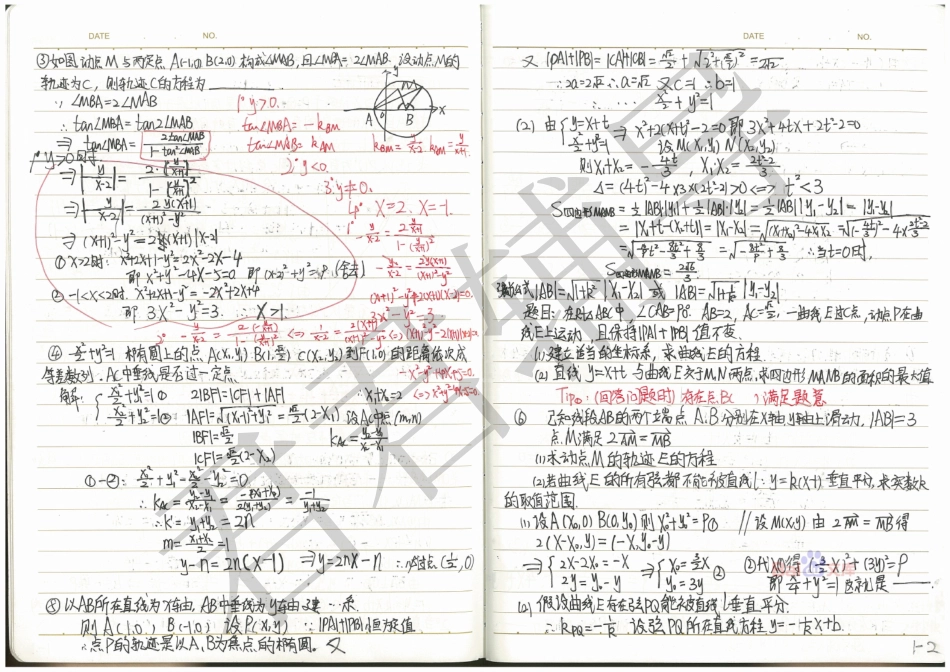 DATE NO.
③如图,动点M与两定点A(-1,0) B(2,0)构成△MAB,且∠MBA=2∠MAB. 设动点M的
轨迹为C, 则轨迹C的方程为
∵ ∠MBA=2∠MAB
∴ tan∠MBA=tan2∠MAB
⇒ tan∠MBA= 2tan∠MAB / 1-tan²∠MAB
1° y>0.
tan∠MBA=-k_BM
2° y<0.
3° y≠0.
4° x=2. x=-1.
1° y>0时
⇒ |y/x-2| = 2·|y/x+1| / 1-(y/x+1)²
⇒ |y/x-2| = 2y(x+1) / (x+1)²-y²
⇒ (x+1)²-y²=2|x+1||x-2|
① x>2时: x²+2x+1-y²=2x²-2x-4
即 x²+y²-4x-5=0 即 (x-2)²+y²=9 (舍去)
② -1<x<2时. x²+2x+1-y²=-2x²+2x+4
即 3x²-y²=3. ∴ x>1.
④ x²/2+y²=1 椭圆上的点, A(x₁,y₁) B(1,√2/2) C(x₂,y₂) 到F(1,0)的距离依次成
等差数列. AC中垂线是否过一定点.
解:
x₁²/2+y₁²=1①
x₂²/2+y₂²=1②
2|BF|=|CF|+|AF|
∴ x₁+x₂=2
|AF|=√(x₁-1)²+y₁² = √2/2(2-x₁) 设AC中点(m,n)
|BF|=√2/2
|CF|=√2/2(2-x₂)
k_AC= y₂-y₁ / x₂-x₁
①-②: x₁²/2+y₁²-x₂²/2-y₂²=0
∴ k_AC= y₂-y₁ / x₂-x₁ = -(x₁+x₂) / 2(y₁+y₂) = -1 / y₁+y₂
∴ k'=y₁+y₂=2n
m= x₁+x₂ / 2 =1
y-n=2n(x-1) ⇒ y=2nx-n ∴过定点(1/2,0)
⑤ 以AB所在直线为x轴, AB中垂线为y轴建…系.
则A(-1,0) B(1,0) 设P(x,y) ∵|PA|+|PB|恒为定值
∴点P的轨迹是以A、B为焦点的椭圆. 又
DATE NO.
又 |PA|+|PB|=|CA|+|CB|= √2/2+√2²+(√2/2)² =2√2
∴2a=2√2 ∴a=√2 又c=1 ∴b=1
∴ x²/2+y²=1
(2) 由 y=x+t x²/2+y²=1 ⇒ x²+2(x+t)²-2=0 即 3x²+4tx+2t²-2=0
设M(x₁,y₁) N(x₂,y₂)
则x₁+x₂=-4t/3, x₁x₂= 2t²-2 / 3
Δ=(4t)²-4×3×(2t²-2)>0 <=> t²<3
S四边形MANB = ½|AB||y₁|+½|AB||y₂|=½|AB||y₁-y₂|=|y₁-y₂|
=|x₁+t-(x₂+t)|=|x₁-x₂|=√(x₁+x₂)²-4x₁x₂
∴当t=0时,
S四边形MANB= 2√6/3
弦长公式 |AB|=√1+k²|x₁-x₂| 或 |AB|=√1+1/k²|y₁-y₂|
题目: 在Rt△ABC中, ∠CAB=90°. AB=2, AC=√2/2, 一曲线E过C点, 动点P在曲
线E上运动, 且保持|PA|+|PB|值不变.
(1)建立适当的坐标系, 求曲线E的方程
(2)直线y=x+t与曲线E交于M,N两点,求四边形MANB的面积的最大值
Tips: (回答问题时) 存在点B( )满足题意
⑥ 已知线段AB的两个端点A、B分别在x轴y轴上滑动, |AB|=3
点M满足2AM=MB
(1)求动点M的轨迹E的方程
(2)若曲线E的所有弦都不能被直线l: y=k(x-1)垂直平分, 求实数k
的取值范围.
(1)设A(x₀,0) B(0,y₀) 则x₀²+y₀²=9① // 设M(x,y) 由2AM=MB得
2(x-x₀,y)=(-x,y₀-y)
⇒ 2x-2x₀=-x 2y=y₀-y ⇒ x₀=3/2x y₀=3y ② ②代入①得 (3/2x)²+(3y)²=9
即 x²/4+y²=1 这就是
(2)假设曲线E存在弦PQ能被直线l垂直平分
∴ k_PQ=-1/k 设弦PQ所在直线方程y=-1/k x+b.
1-2
君君辅导